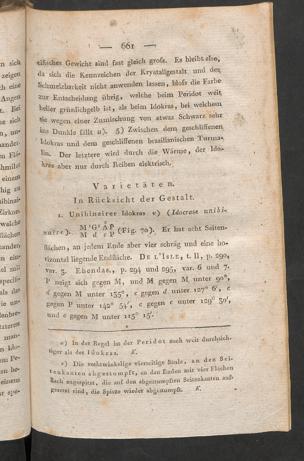 — 661 —
cifisches Gewicht sind fast gleich gross. Es bleibt also,
da sich die Kennzeichen der Krystallgestalt und der
Schmelzbarkeit nicht anwenden lassen, bloss die Farbe
zur Entscheidung übrig, welche beym Peridot weit
heller grünlichgelb ist, als beim Idokras, bei welchem
sie wegen einer Zumischung von etwas Schwarz sehr
ins Dunkle fällt u). 5.) Zwischen dem geschliffenen
Idokras und dem geschliffenen brasilianischen Turma-
lin. Der letztere wird durch die Wärme, der Ido-
kras aber nur durch Reiben elektrisch.
Varietäten.
In Rücksicht der Gestalt.
1. Unibinairer Idokras v) (Idocrase unibi-
naire).
M¹G¹ÂP
M d c P
(Fig. 70). Er hat acht Seiten-
flächen, an jedem Ende aber vier schräg und eine ho-
rizontal liegende Endfläche. DE L'ISLE, t. II, p. 290,
var. 3. Ebendas., p. 294 und 295, var. 6 und 7.
P neigt sich gegen M, und M gegen M unter 90°,
d gegen M unter 135°, c gegen d unter 127° 6', c
gegen P unter 142° 54', c gegen c unter 129° 30',
und c gegen M unter 115° 15'.
u) In der Regel ist der Peridot auch weit durchsich-
tiger als der Idokras. K.
v) Die rechtwinkelige vierseitige Säule, an den Sei-
tenkanten abgestumpft, an den Enden mit vier Flächen
flach zugespitzt, die auf den abgestumpften Seitenkanten auf-
gesetzt sind, die Spitze wieder abgestumpft. K.